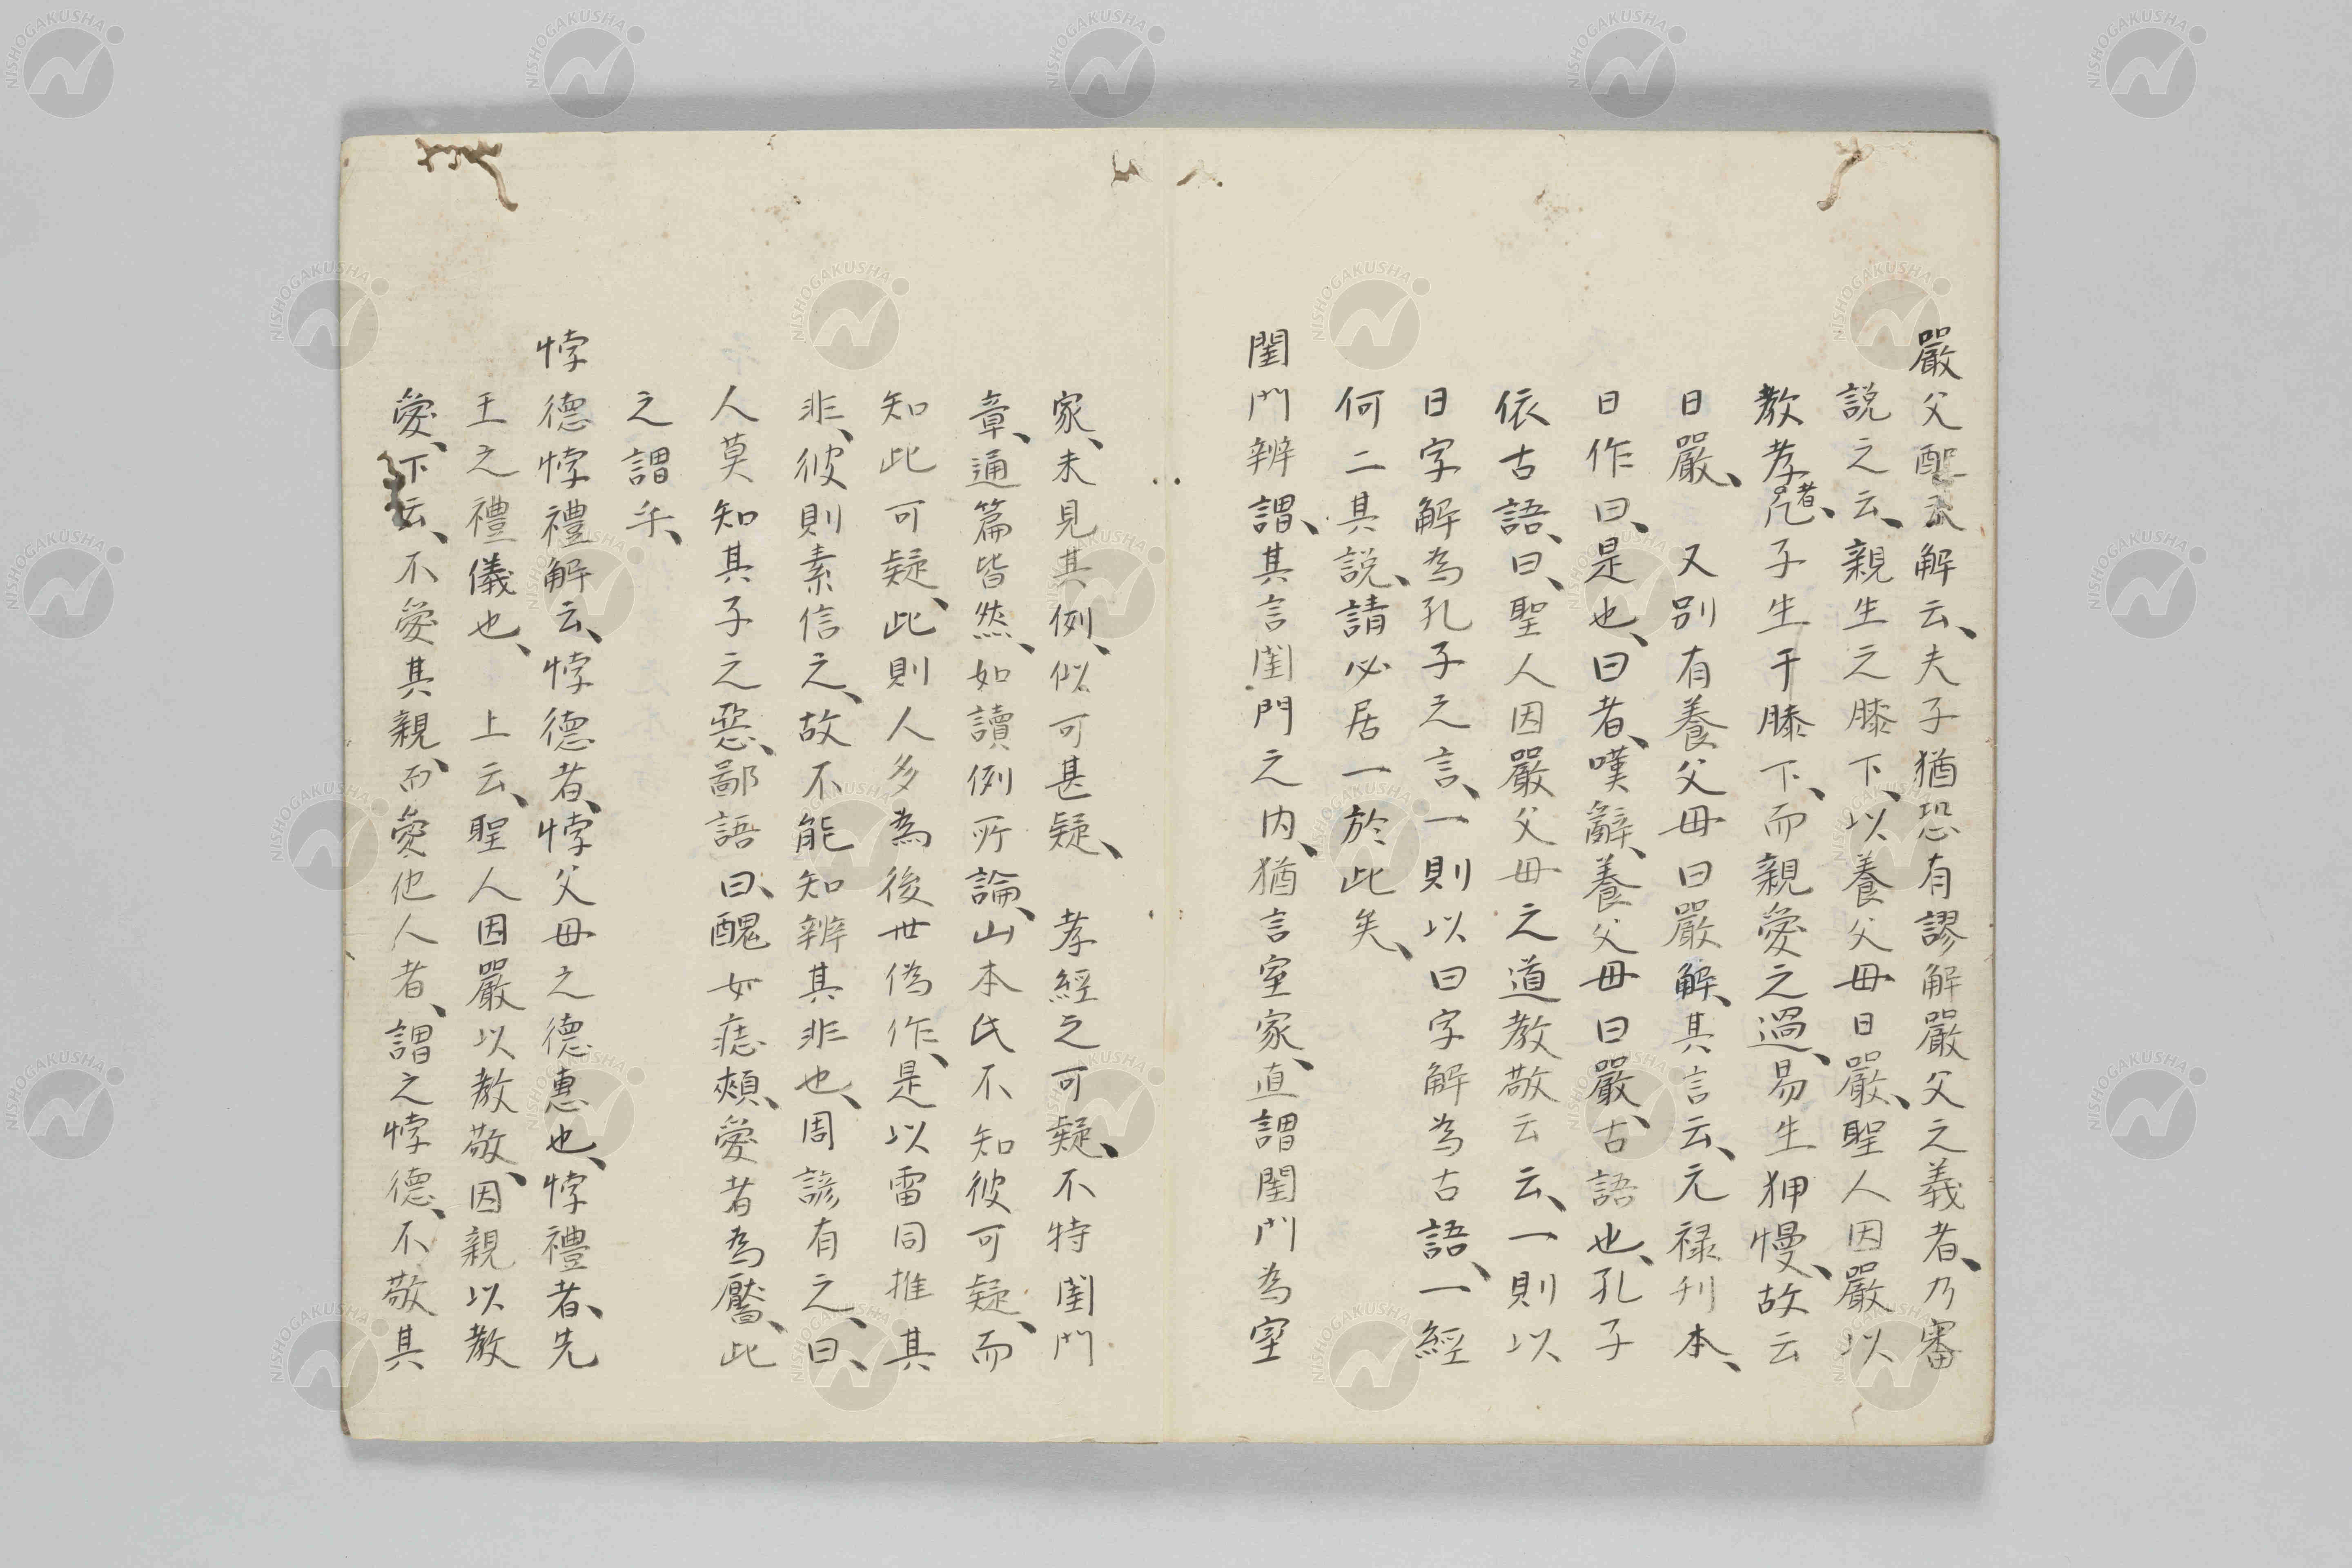 嚴父配天解云、夫子猶恐有謬解嚴父之義者、乃審
説之云、親生之膝下、以養父母日嚴、聖人因嚴以
教孝者、凡子生于膝下、而親愛之過、易生狎慢、故云
日嚴、又別有養父毋曰嚴解、其言云、元禄刋本、
日作曰、是也、曰者、嘆辭、養父毋曰嚴、古語也、孔子
依古語、曰、聖人因嚴父母之道教敬云云、一則以
日字解為孔子之言、一則以曰字解為古語、一經
何二其説、請必居一於此矣、
閨門辨謂、其言閨門之内、猶言室家、直謂閨門為室
家、未見其例、似可甚疑、孝經之可疑、不特閨門
章、通篇皆然、如讀例所論、山本氏不知彼可疑、而
知此可疑、此則人多為後世偽作、是以雷同推其
非、彼則素信之、故不能知辨其非也、周諺有之、曰、
人莫知其子之惡、鄙語曰、醜女痣頰、愛者為靨、此
之謂乎、
悖德悖禮解云、悖德者、悖父毋之德惠也、悖禮者、先
王之禮儀也、上云、聖人因嚴以教敬、因親以教
愛、下云、不愛其親、而愛他人者、謂之悖德、不敬其